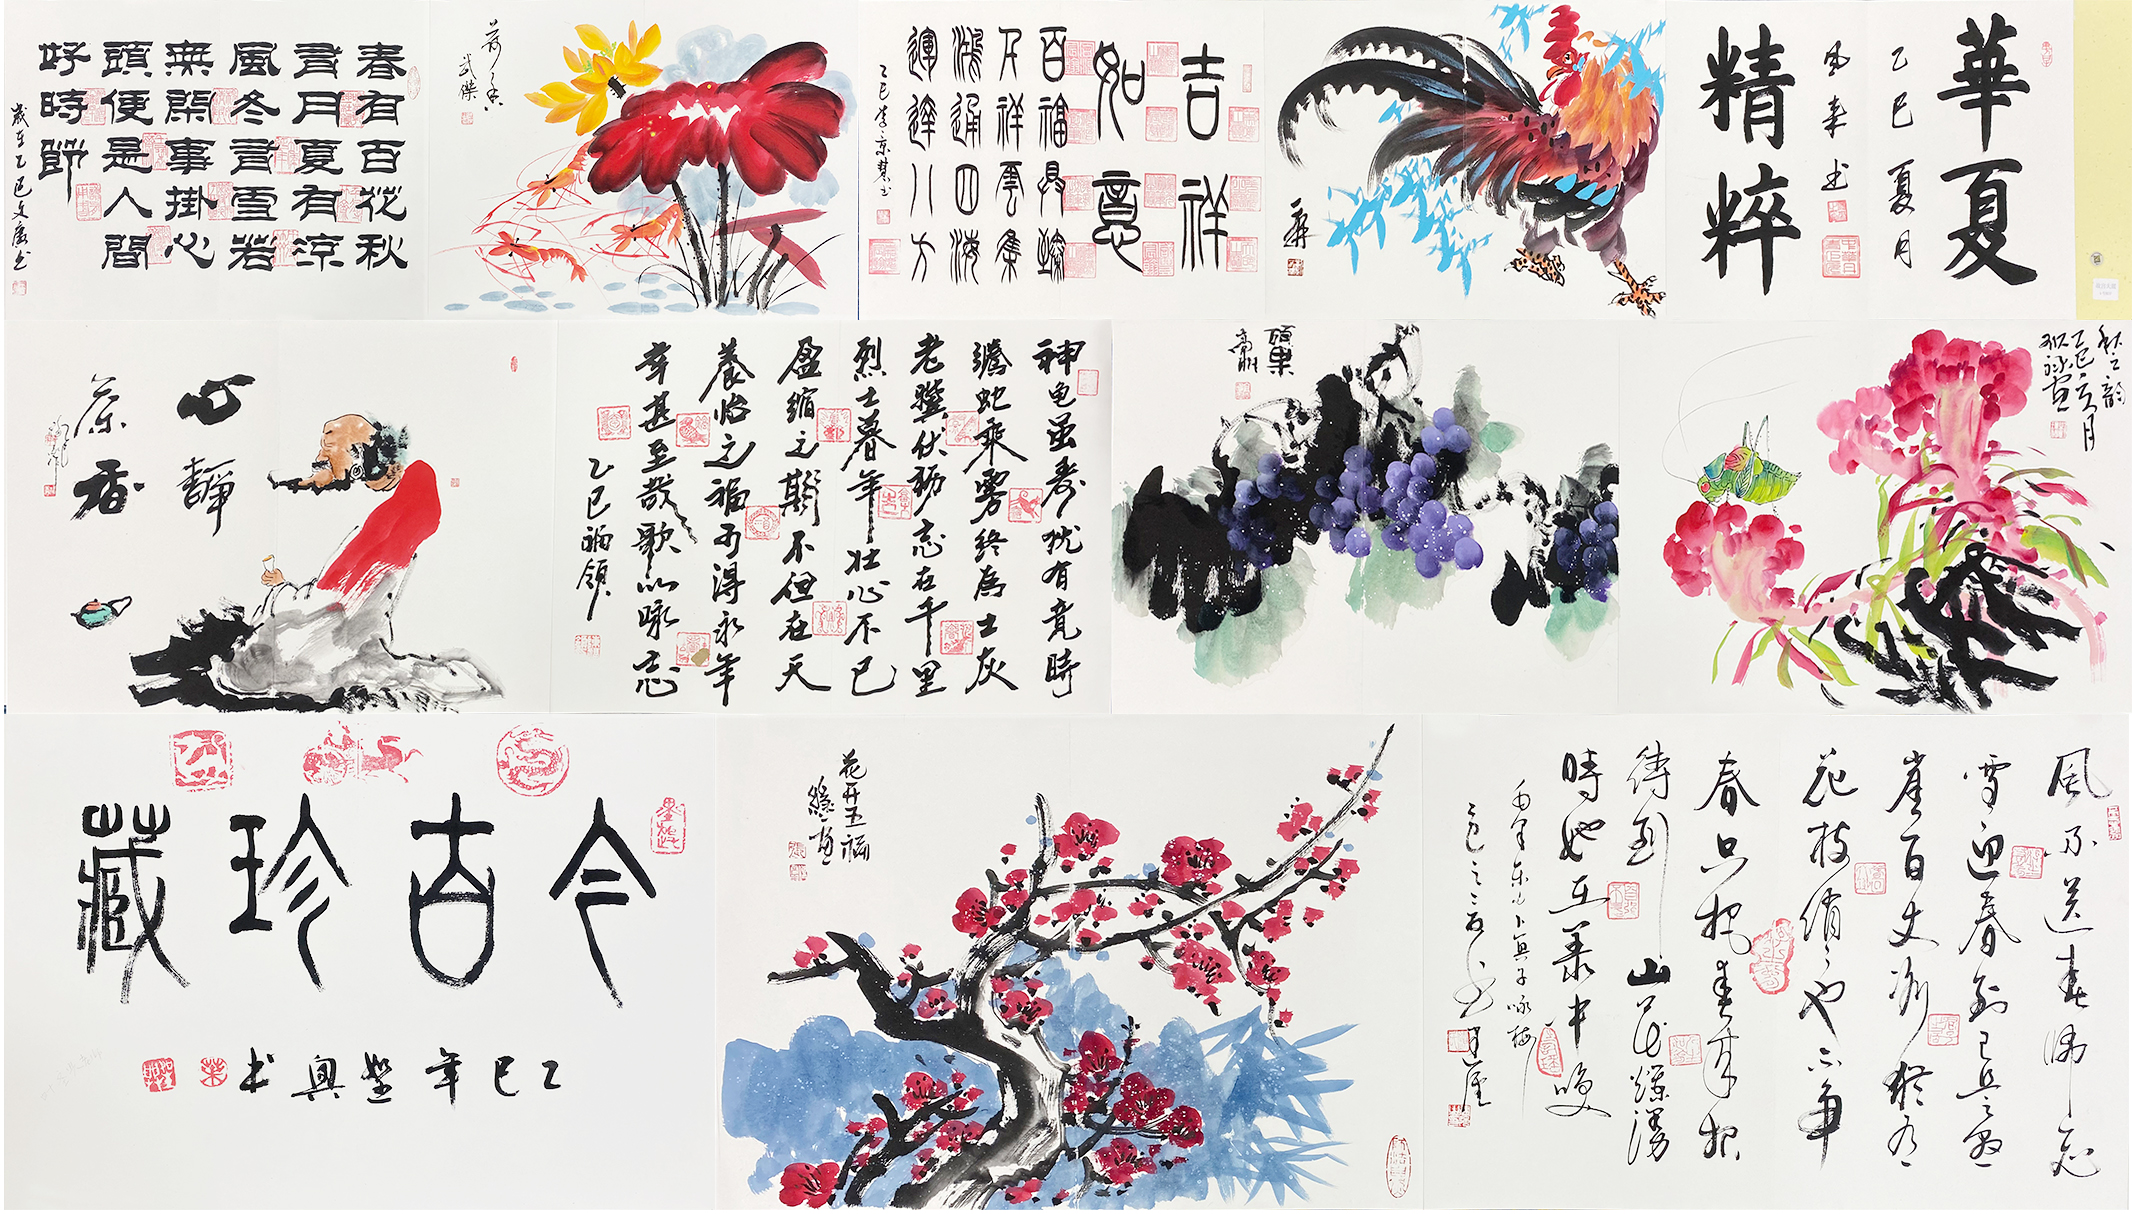 華夏
乙巳夏月
精粹
吉祥
如意
百福具臻
千祥雲集
鴻通四海
運達八方
乙巳李京慧书
荷香
武傑
春有百花秋
有月夏有涼
風冬有雪若
無閑事掛心
頭便是人間
好時節
歲在乙巳文慶书
秋之韵
乙巳夏月
硕果
神龟虽寿犹有竟時
腾蛇乘雾终為土灰
老骥伏枥志在千里
烈士暮年壮心不已
盈缩之期不但在天
養怡之福可得永年
幸甚至哉歌以咏志
乙巳福領
心靜
茶香
風雨送春归飛
雪迎春到已是悬
崖百丈冰犹有
花枝俏俏也不争
春只把春来报
待到山花爛漫
時她在叢中笑
花开五福
今古珍藏
乙巳年楚興书